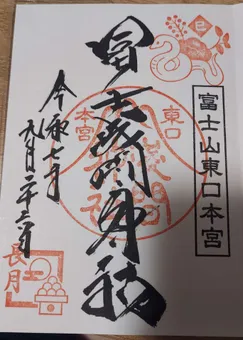 富士山東口本宮
東口
冨士浅間神社
本宮
令和七年
九月二十三日
長月